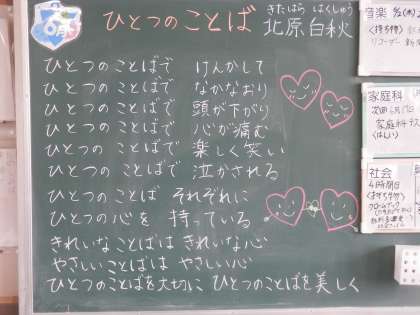 6月
ひとつの ことば
きたはら はくしゅう
北原白秋
ひとつの ことばで けんかして
ひとつの ことばで なかなおり
ひとつの ことばで 頭が下がり
ひとつの ことばで 心が痛む
ひとつの ことばで 楽しく笑い
ひとつの ことばで 泣かされる
ひとつの ことば それぞれに
ひとつの心を 持っている
きれいなことばは きれいな心
やさしいことばは やさしい心
ひとつのことばを大切に ひとつのことばを美しく
音楽
リコーダー
家庭科
家庭科
社会